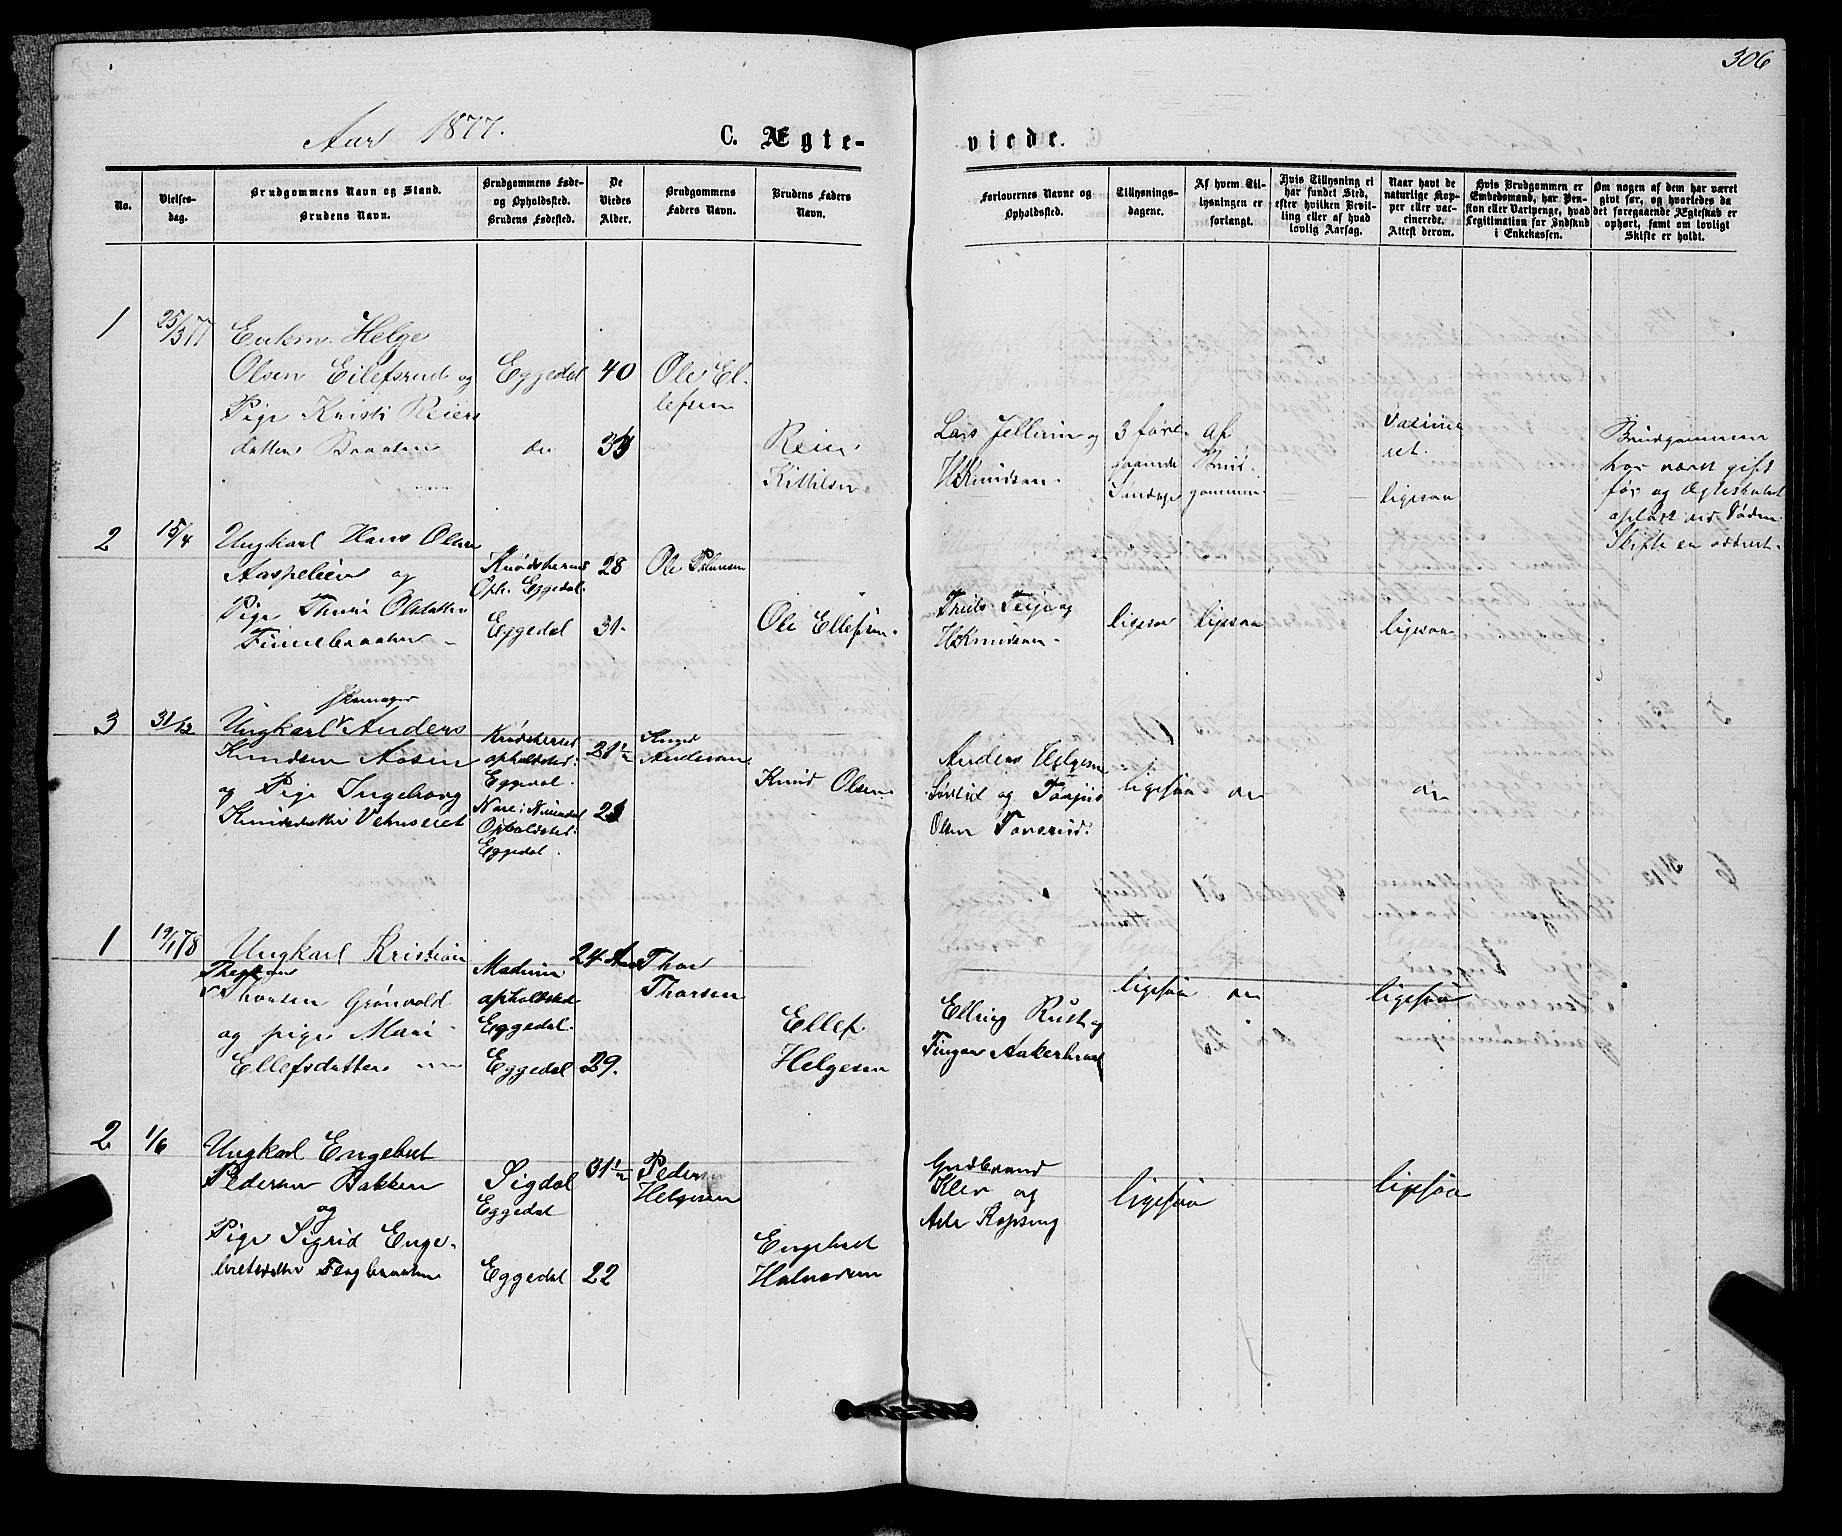 306
Aar 1877.
C. Ægte-
viede.
No.
Vielses-
dag.
Brudgommens Navn og Stand.
Brudens Navn.
Brudgommens Føde-
og Opholdssted.
Brudens Fødested.
De
Viedes
Alder.
Brudgommens
Faders Navn.
Brudens Faders
Navn.
Forlovernes Navne og
Opholdssted.
Tillysnings-
dagene.
Af hvem Til-
lysningen er
forlangt.
Hvis Tillysning ei
har fundet Sted,
efter hvilken Bevil-
ling eller af hvad
lovlig Aarsag.
Naar havt de
naturlige Kop-
per eller vac-
cinerede.
Attest derom.
Hvis Brudgommen er
Embedsmand, har Pen-
sion eller Vartpenge, hvad
Legitimation for Indskud
i Enkekassen.
Om nogen af dem har været
gift før, og hvorledes da
det foregaaende Ægteskab er
ophørt, samt om lovligt
Skifte er holdt.
1
25/3 77
Enkm. Helge
Olsen Eilefsrud og
Pige Kristi Reiers
datter Braaten
Eggedal
do
40
Ole El-
lefsen
Reier
Kittilsen
Lars Jellum og
H Knudsen
3 fore-
gaaende
Søndage
af
Brud-
gommen
Vaccine
ret.
ligesaa
Brudgommen
har været gift
før og Ægteskabet
opløst ved Døden
Skifte er
2
15/4
Ungkarl Hans Olsen
Aaspelien og
Pige Thuri Olsdatter
Finnebraaten
Krødsherred
Oph. Eggedal
Eggedal
28
31
Ole
Ole Ellefsen
Truls Teije og
H Knudsen
ligesaa
ligesaa
ligesaa
3
31/12
Ungkarl Anders
Knudsen Aasen
og Pige Ingeborg
Knudsdatter
Krødsherred
opholdsted:
Eggedal.
Nore i Numedal
Opholdsted:
Eggedal.
21 1/2
Knud
Andersen
Knud Olsen
Anders Helgesen
og
Olsen
ligesaa
do
do
1
19/1 78
Ungkarl Kristian
Thorsen Grønvold
og pige Mari
Ellefsdatter
Modum
opholdsted
Eggedal.
Eggedal
24 Aar
29.
Thor
Thorsen
Ellef
Helgesen
Elling Rust og
Finger Aakerbraat
ligesaa
do
ligesaa
2
1/6
Ungkarl Engebret
Pedersen Bakken
og
Pige Sigrid Enge-
bretsdatter Flagbraaten
Sigdal
Eggedal
Eggedal
31 1/2
22
Peder
Helgesen
Engebret
Halvorsen
Gudbrand
Klev og
Asle Kopseng
ligesaa
ligesaa